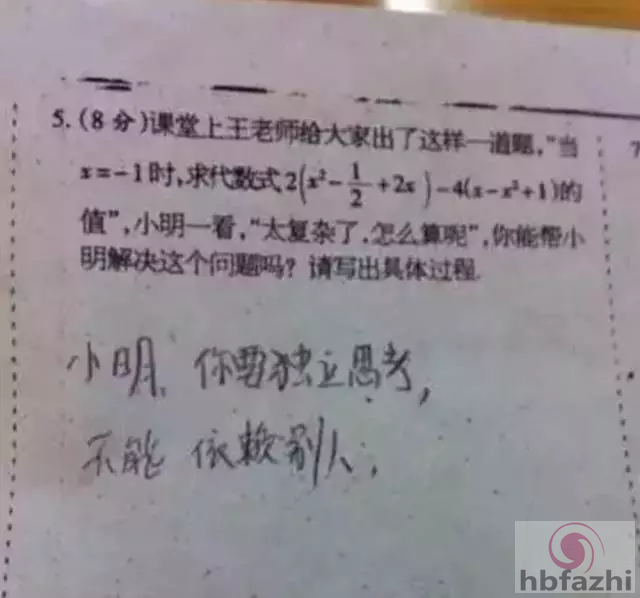 5.(8分)课堂上王老师给大家出了这样一道题,"当
x=-1时,求代数式2(x²-1/2+2x)-4(x-x²+1)的
值",小明一看,"太复杂了,怎么算呢",你能帮小
明解决这个问题吗?请写出具体过程.
7
小明、你要独立思考,
不能 依赖别人,
hbfazhi